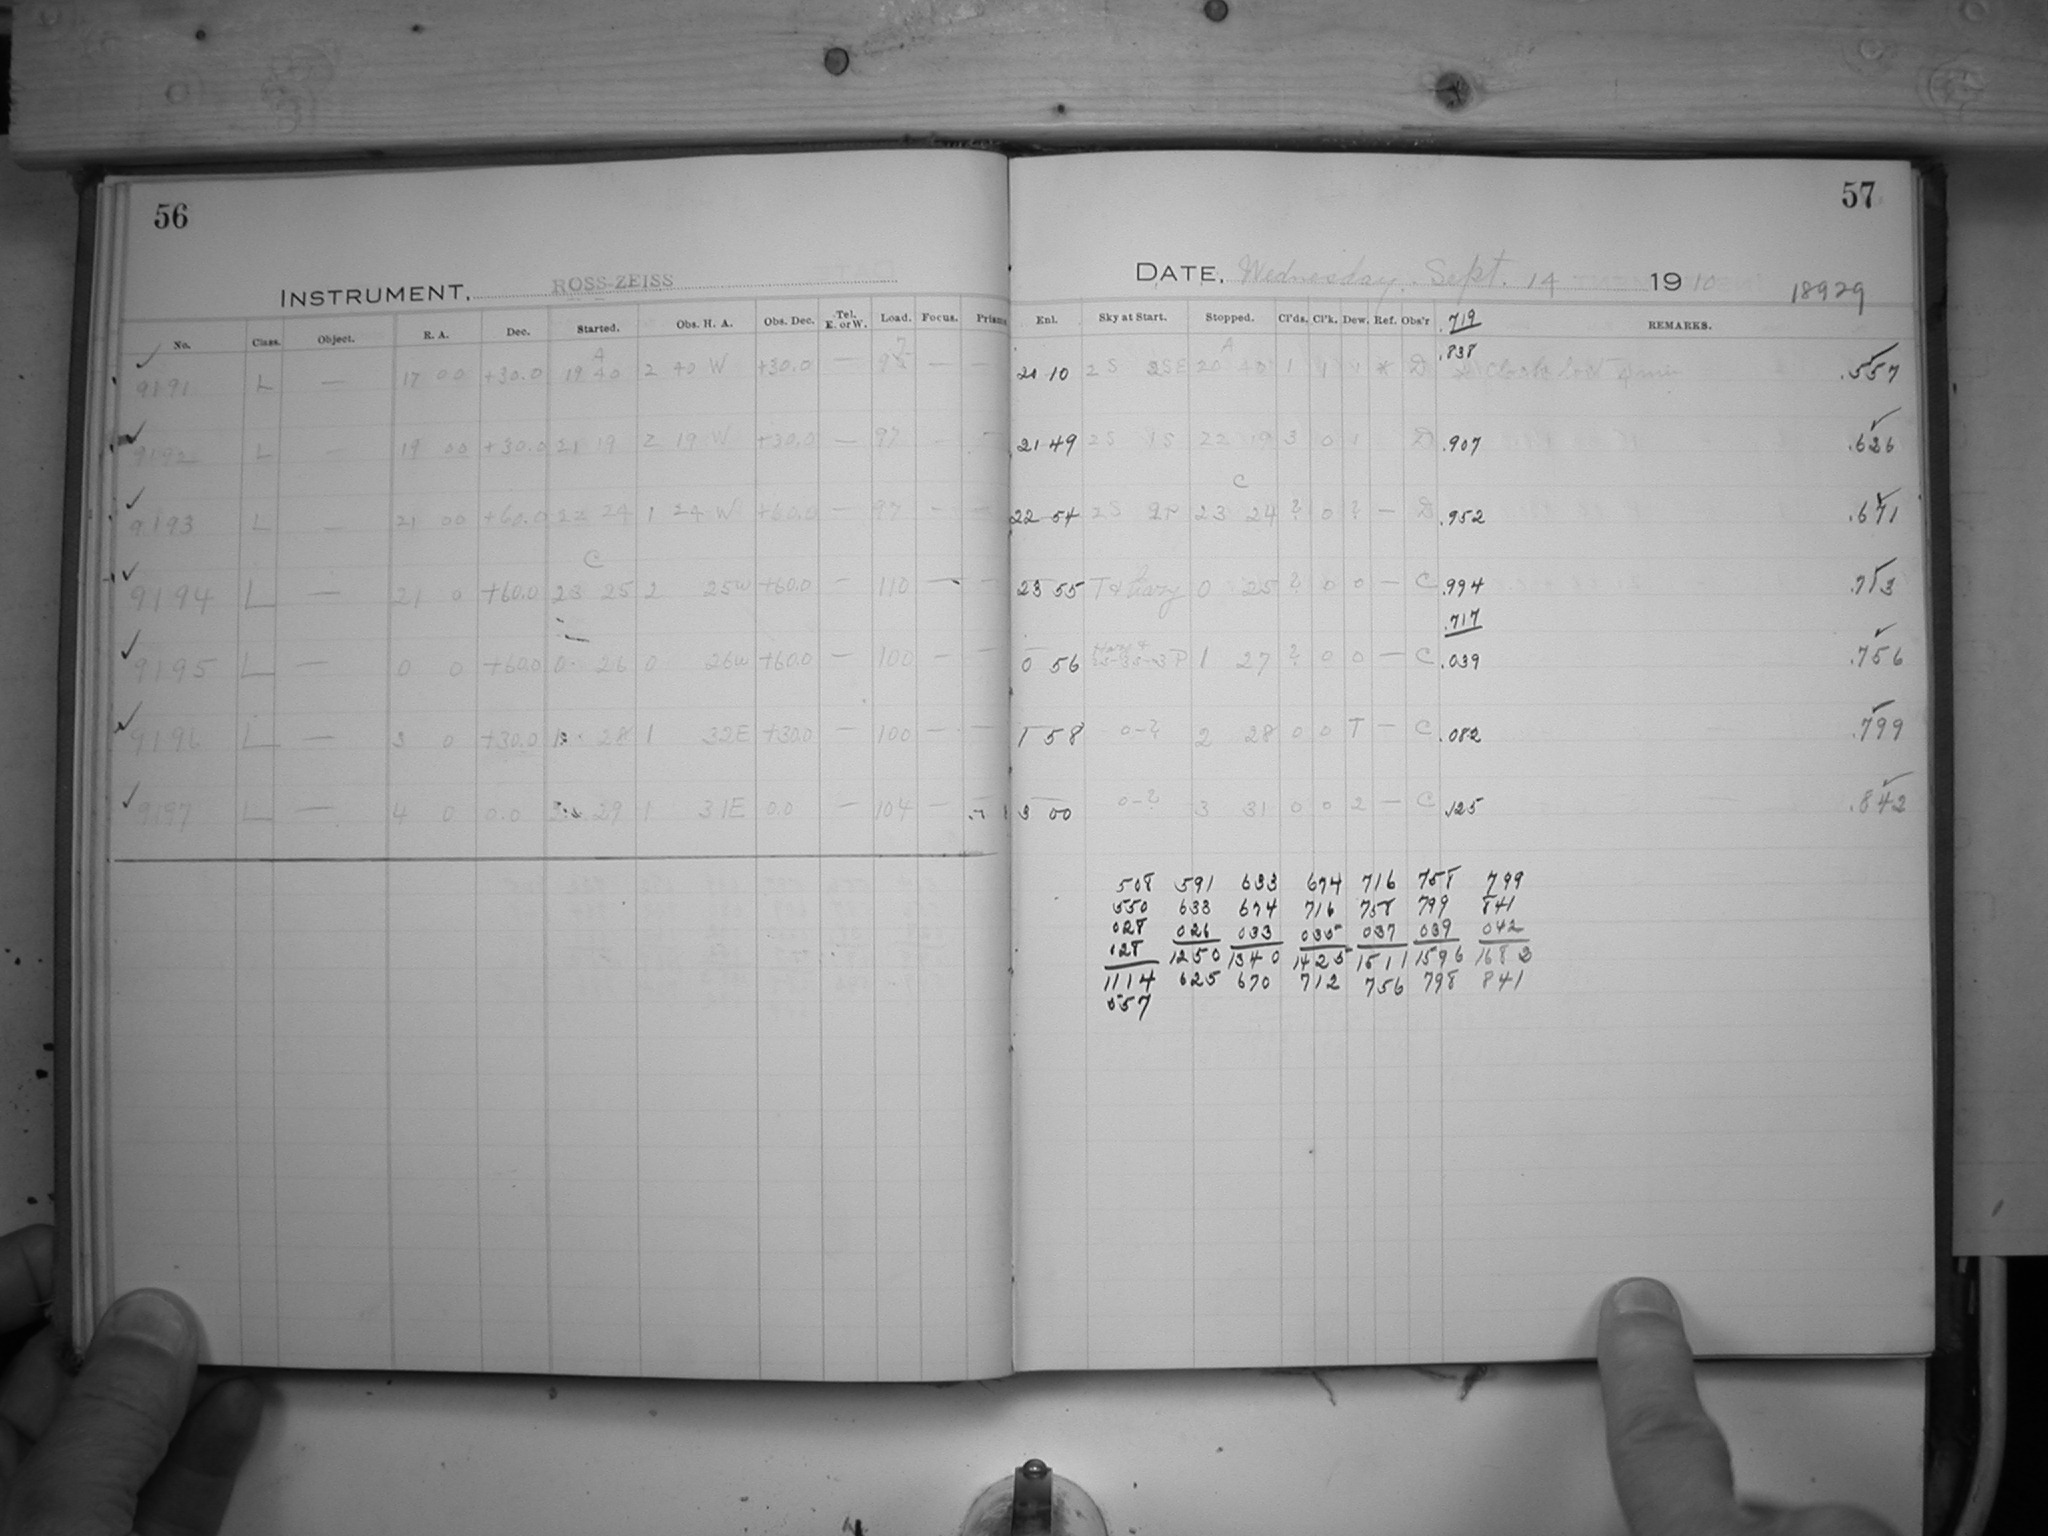 56
INSTRUMENT, ROSS-ZEISS
No. Class. Object. R. A. Dec. Started. Obs. H. A. Obs. Dec. Tel. E. or W. Load. Focus. Prisms
9191 L — 17 00 +30.0 19 40 2 40 W +30.0 — 97 — —
9192 L — 19 00 +30.0 21 19 2 19 W +30.0 — 97 - —
9193 L — 21 00 +60.0 22 24 1 24 W +60.0 — 97 - —
C
9194 L — 21 0 +60.0 23 25 2 25w +60.0 - 110 — —
9195 L — 0 0 +60.0 0 26 0 26w +60.0 — 100 - —
9196 L — 3 0 +30.0 1 28 1 32E +30.0 — 100 — —
9197 L — 4 0 0.0 2 29 1 31E 0.0 — 104 — —
57
DATE, Wednesday. Sept. 14 1910 18929
Enl. Sky at Start. Stopped. Cl'ds. Cl'k. Dew. Ref. Obs'r .719 REMARKS.
A .838
20 10 2S 2SE 20 40 1 1 1 * D Clock lost 4 min .557
21 49 2S 1S 22 19 3 0 1 D .907 .626
C
22 54 2S 2P 23 24 ? 0 ? — D .952 .671
23 55 T & hazy 0 25 ? 0 0 — C .994 .713
.717
0 56 1 27 ? 0 0 — C .039 .756
1 58 0-? 2 28 0 0 T — C .082 .799
3 00 0-? 3 31 0 0 2 — C .125 .842
508 591 633 674 716 758 799
550 633 674 716 758 799 841
028 026 033 035 037 039 042
028 1250 1340 1425 1511 1596 1683
1114 625 670 712 756 798 841
557